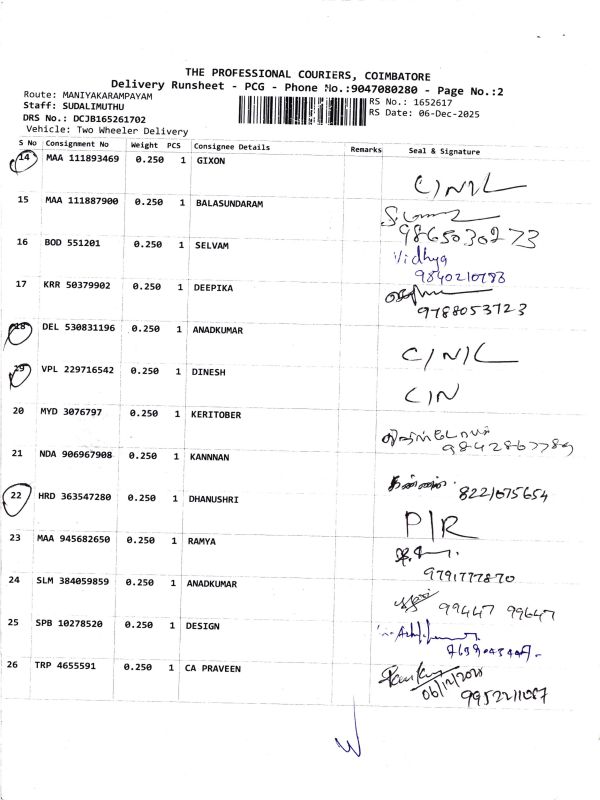 THE PROFESSIONAL COURIERS, COIMBATORE
Delivery Runsheet - PCG - Phone No.:9047080280 - Page No.:2
Route: MANIYAKARAMPAYAM
Staff: SUDALIMUTHU
DRS No.: DCJB165261702
Vehicle: Two Wheeler Delivery
RS No.: 1652617
RS Date: 06-Dec-2025
S No Consignment No Weight PCS Consignee Details Remarks Seal & Signature
14 MAA 111893469 0.250 1 GIXON
C/N/L
15 MAA 111887900 0.250 1 BALASUNDARAM
9865030273
16 BOD 551201 0.250 1 SELVAM
Vidhya
9840210783
17 KRR 50379902 0.250 1 DEEPIKA
9788053723
18 DEL 530831196 0.250 1 ANADKUMAR
C/N/L
19 VPL 229716542 0.250 1 DINESH
C/N
20 MYD 3076797 0.250 1 KERITOBER
9842867789
21 NDA 906967908 0.250 1 KANNNAN
கண்ணன் 8221075654
22 HRD 363547280 0.250 1 DHANUSHRI
P/R
23 MAA 945682650 0.250 1 RAMYA
9791777870
24 SLM 384059859 0.250 1 ANADKUMAR
99447 99647
25 SPB 10278520 0.250 1 DESIGN
26 TRP 4655591 0.250 1 CA PRAVEEN
06/12/2025
9952211087